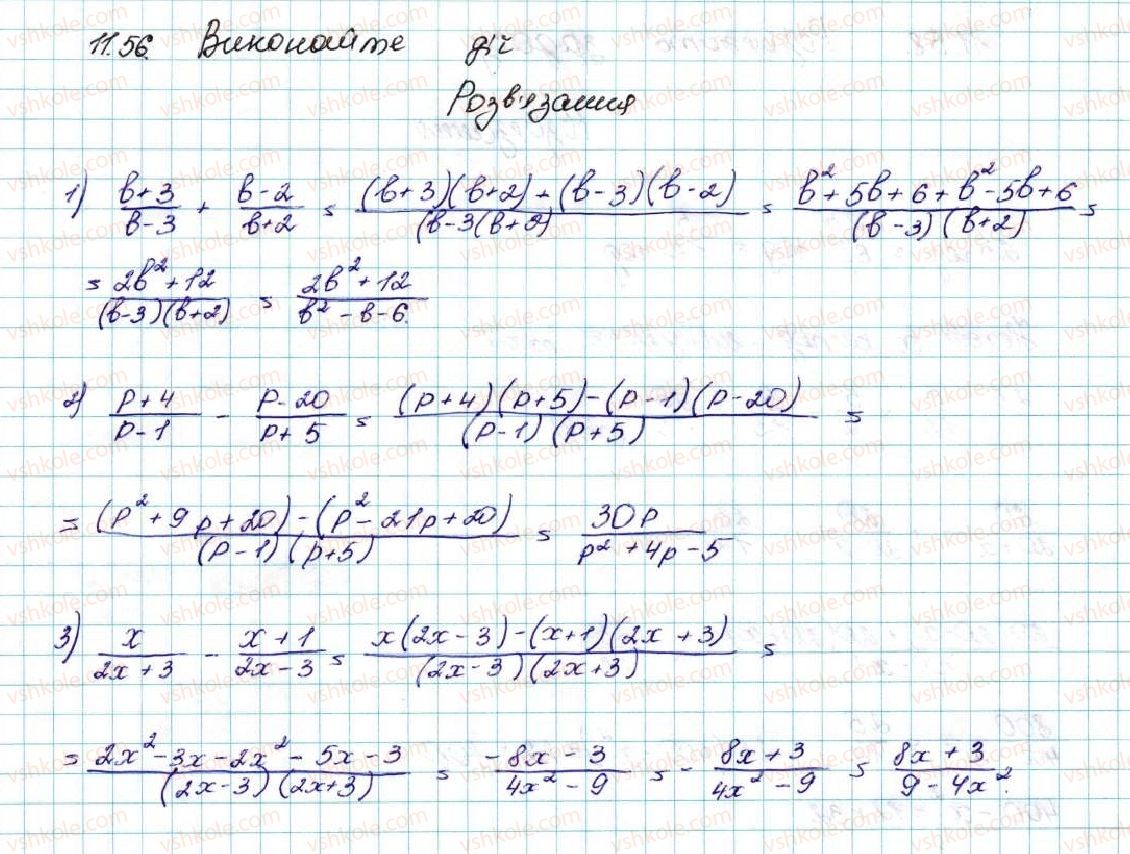 11.56. Виконайте дії
Розв'язання
1) (b+3)/(b-3) + (b-2)/(b+2) = ((b+3)(b+2)+(b-3)(b-2))/((b-3(b+2)) = (b²+5b+6+b²-5b+6)/((b-3)(b+2)) =
= (2b²+12)/((b-3)(b+2)) = (2b²+12)/(b²-b-6).
2) (p+4)/(p-1) - (p-20)/(p+5) = ((p+4)(p+5)-(p-1)(p-20))/((p-1)(p+5)) =
= ((p²+9p+20)-(p²-21p+20))/((p-1)(p+5)) = 30p/(p²+4p-5)
3) x/(2x+3) - (x+1)/(2x-3) = (x(2x-3)-(x+1)(2x+3))/((2x-3)(2x+3)) =
= (2x²-3x-2x²-5x-3)/((2x-3)(2x+3)) = (-8x-3)/(4x²-9) = -(8x+3)/(4x²-9) = (8x+3)/(9-4x²).
vshkole.com